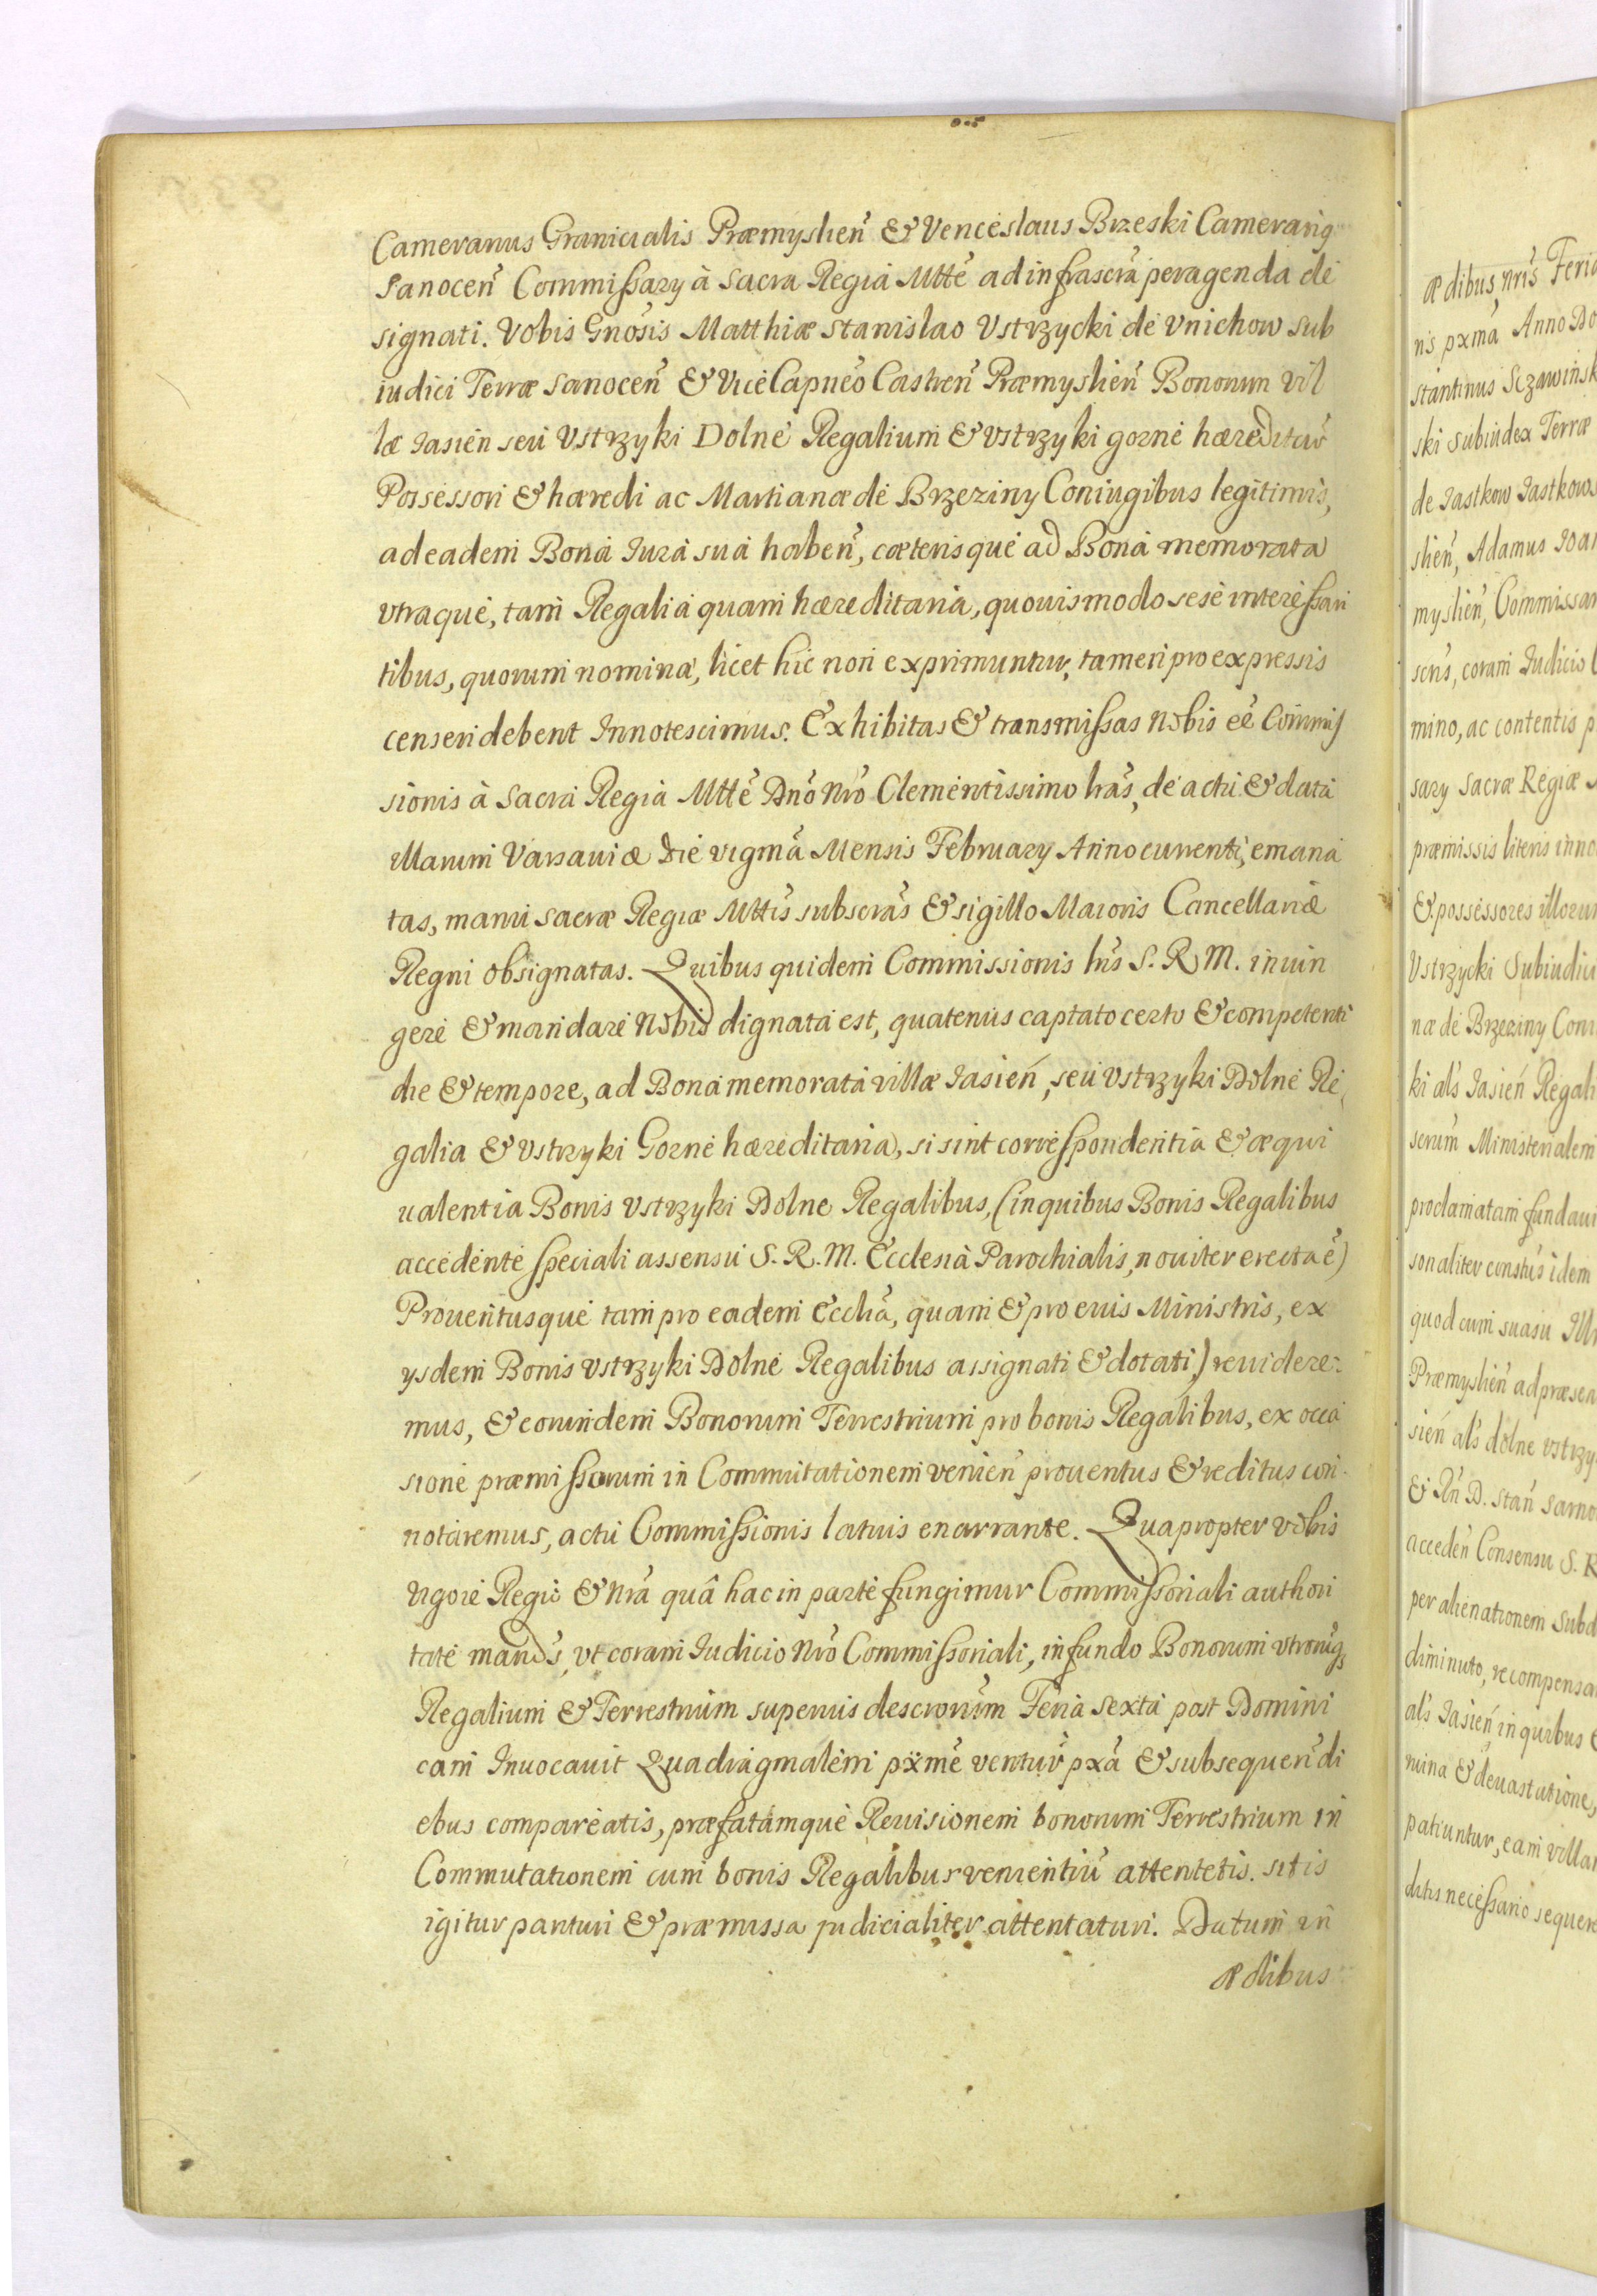 Cameranus Granicialis Præmyslien̄ & Venceslaus Brzeski Cameraring
Sanocen̄ Commissary à Sacra Regia Mtte ad infrascra peragenda de
signati. Vobis Gnosis Matthiæ Stanislao Vstrzycki de Vnichow sub
iudici Terræ Sanocen̄ & ViceCapneo Castren̄ Præmyslien̄ Bonorum vil
læ Jasien seu Vstrzyki Dolne Regalium & Vstrzyki gorne hæreditar
Possessori & hæredi ac Martianæ de Brzeziny Coniugibus legitimis,
ad eadem Bona Jura sua haben̄, cæterisque ad Bona memorata
vtraque, tam Regalia quam hæreditaria, quouismodo sese interessan
tibus, quorum nomina, licet hic non exprimuntur, tamen pro expressis
censeri debent Innotescimus. Exhibitas & transmissas Nobis eē Commis
sionis à Sacra Regia Mtte Dno Nro Clementissimo lras, de actu & data
illarum Varsauiæ die vigma Mensis February Anno currenti, emana
tas, manu sacræ Regiæ Mttis subscras & sigillo Maioris Cancellariæ
Regni obsignatas. Quibus quidem Commissionis lris S. R. M. iniun
gere & mandare Nobis dignata est, quatenus captato certo & competenti
die & tempore, ad Bona memorata villæ Jasień, seu Vstrzyki Dolne Re
galia & Vstrzyki Gorne hæreditaria, si sint correspondentia & æqui
ualentia Bonis Vstrzyki Dolne Regalibus, (in quibus Bonis Regalibus
accedente speciali assensu S. R. M. Ecclesia Parochialis, noviter erecta ē)
Prouentusque tam pro eadem Ecclia, quam & pro eius Ministris, ex
ysdem Bonis Vstrzyki Dolne Regalibus assignati & dotati,) reuidere
mus, & eorundem Bonorum Terrestrium pro bonis Regalibus, ex occa
sione præmissorum in Commutationem venien̄ prouentus & reditus con
notaremus, actu Commissionis latius enarrante. Quapropter vobis
vigore Regio & Nra quâ hac in parte fungimur Commissoriali authori
tate mands, vt coram Judicio Nro Commissoriali, in fundo Bonorum vtrorūqs
Regalium & Terrestrium superius descrorum Feria Sexta post Domini
cam Inuocauit Quadragmalem pxme ventur pxa & subsequen̄ di
ebus compareatis, præfatamque Reuisionem bonorum Terrestrium in
Commutationem cum bonis Regalibus venientiu attentetis. Sitis
igitur parituri & præmissa judicialiter attentaturi. Datum in
ædibus
ædibus nris Feria
nis pxma Anno Do
stantinus Sczawinsk
ski Subiudex Terræ
de Jastkow Jastkows
slien̄, Adamus Joan
myslien̄, Commissar
sens, coram Judicio
mino, ac contentis p
sary Sacræ Regiæ
præmissis literis inno
& possessores illorum
Vstrzycki Subiudici
næ de Brzeziny Coni
ki als Jasień Regali
serum Ministerialem
proclamatam fundaui
sonaliter constus idem
quod cum suasu Illr
Præmyslien̄ ad præsen
sień als dolne vstrzy
& Gn̄ D. Stan̄ Sarno
acceden̄ Consensu S. R
per alienationem Subd
diminuto, recompensa
als Jasień in quibus
ruina & deuastatione,
patiuntur, eam villam
ditis necessario sequere